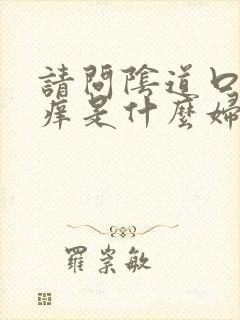 請問陰道口
痒是什麼婦
羅崇敏